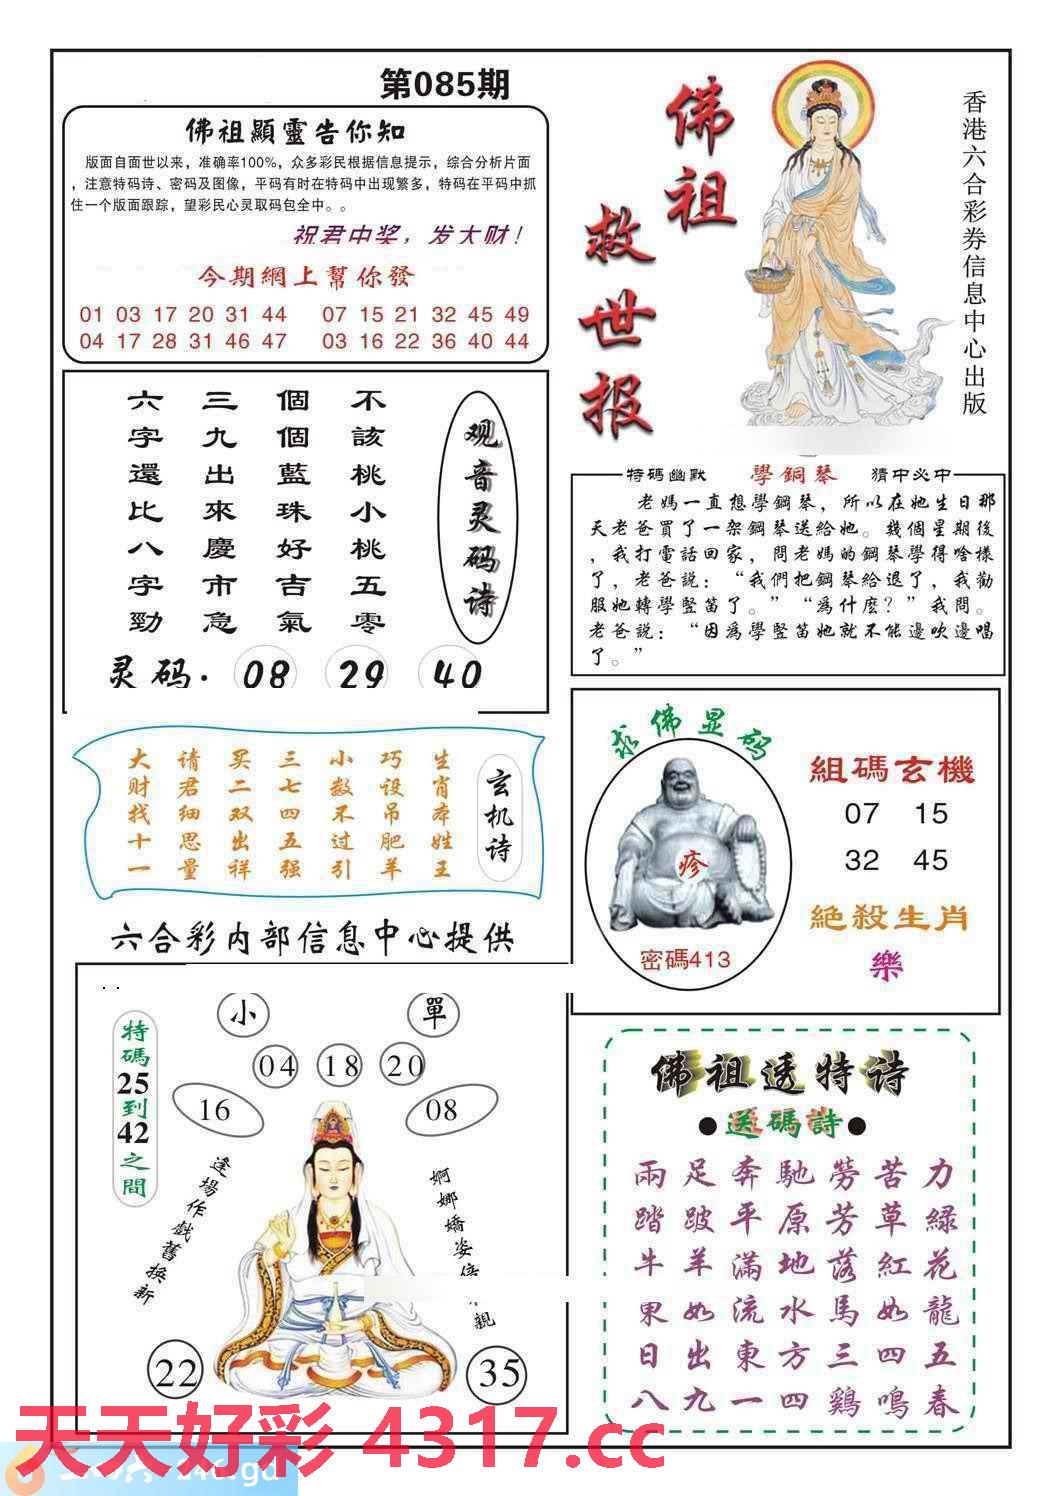 第085期
佛祖顯靈告你知
版面自面世以来，准确率100%，众多彩民根据信息提示，综合分析片面
，注意特码诗、密码及图像，平码有时在特码中出现繁多，特码在平码中抓
住一个版面跟踪，望彩民心灵取码包全中。。
祝君中奖，发大财！
今期網上幫你發
01 03 17 20 31 44 07 15 21 32 45 49
04 17 28 31 46 47 03 16 22 36 40 44
佛祖
救世报
香港六合彩券信息中心出版
观音灵码诗
不該桃小桃五零
個個藍珠好吉氣
三九出來慶市急
六字還比八字勁
灵码. 08 29 40
特碼幽默 學鋼琴 猜中必中
老媽一直想學鋼琴，所以在她生日那
天老爸買了一架鋼琴送給她。幾個星期後
，我打電話回家，問老媽的鋼琴學得啥樣
了，老爸說：“我們把鋼琴給退了，我勸
服她轉學豎笛了。”“為什麽？”我問。
老爸說：“因為學豎笛她就不能邊吹邊唱
了。”
玄机诗
生肖本姓王
巧设吊肥羊
小数不过引
三七四五强
买二双出祥
请君细思量
大财找十一
求佛显码
疹
密碼413
組碼玄機
07 15
32 45
絕殺生肖
樂
六合彩内部信息中心提供
小 單
04 18 20
16 08
特碼25到42之間
逢場作戲舊換新
婀娜嬌姿
親
22 35
佛祖透特诗
●送碼詩●
兩足奔馳勞苦力
踏跛平原芳草綠
牛羊滿地落紅花
果如流水馬如龍
日出東方三四五
八九一四鷄鳴春
天天好彩 4317.cc
246.gd